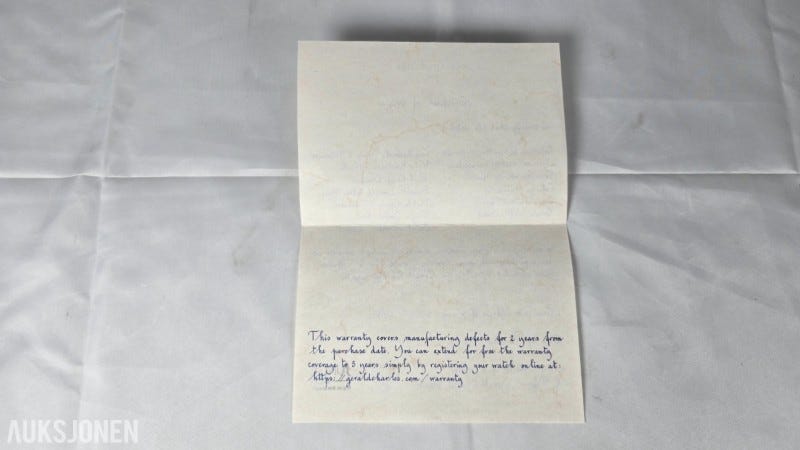 This warranty covers manufacturing defects for 2 years from
the purchase date. You can extend for free the warranty
coverage to 5 years simply by registering your watch online at:
https://geraldcharles.com/warranty
AUKSJONEN